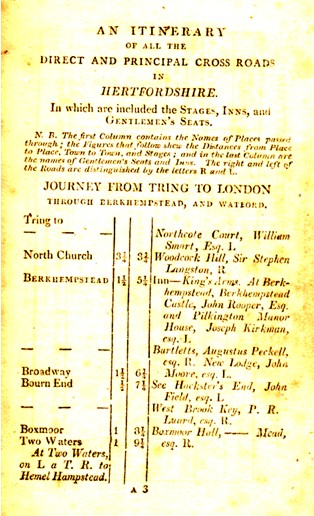 AN ITINERARY
OF ALL THE
DIRECT AND PRINCIPAL CROSS ROADS
IN
HERTFORDSHIRE.
In which are included the STAGES, INNS, and
GENTLEMEN'S SEATS.
N. B. The first Column contains the Names of Places passed
through; the Figures that follow shew the Distances from Place
to Place, Town to Town, and Stages; and in the last Column are
the names of Gentlemen's Seats and Inns. The right and left of
the Roads are distinguished by the letters R and L.
JOURNEY FROM TRING TO LONDON
THROUGH BERKHEMPSTEAD, AND WATFORD.
Tring to
— — — Northcote Court, William
Smart, Esq. L.
North Church 3¾ 3¾ Woodcock Hill, Sir Stephen
Langston, R
BERKHEMPSTEAD 1½ 5¼ Inn—King's Arms. At Berk-
hempstead, Berkhempstead
Castle, John Roper, Esq.
and Pilkington Manor
House, Joseph Kirkman,
esq. L
— — — Bartletts, Augustus Peckell,
esq. R. New Lodge, John
Broadway 1½ 6¾ Moore, esq. L.
Bourn End ½ 7¼ See Hockster's End, John
Field, esq. L.
— — — West Brook Key, P. R.
Luard, esq. R.
Boxmoor 1 8¼ Boxmoor Hall, —— Mead,
Two Waters 1 9¼ esq. R.
At Two Waters,
on L a T. R. to
Hemel Hampstead.
A 3